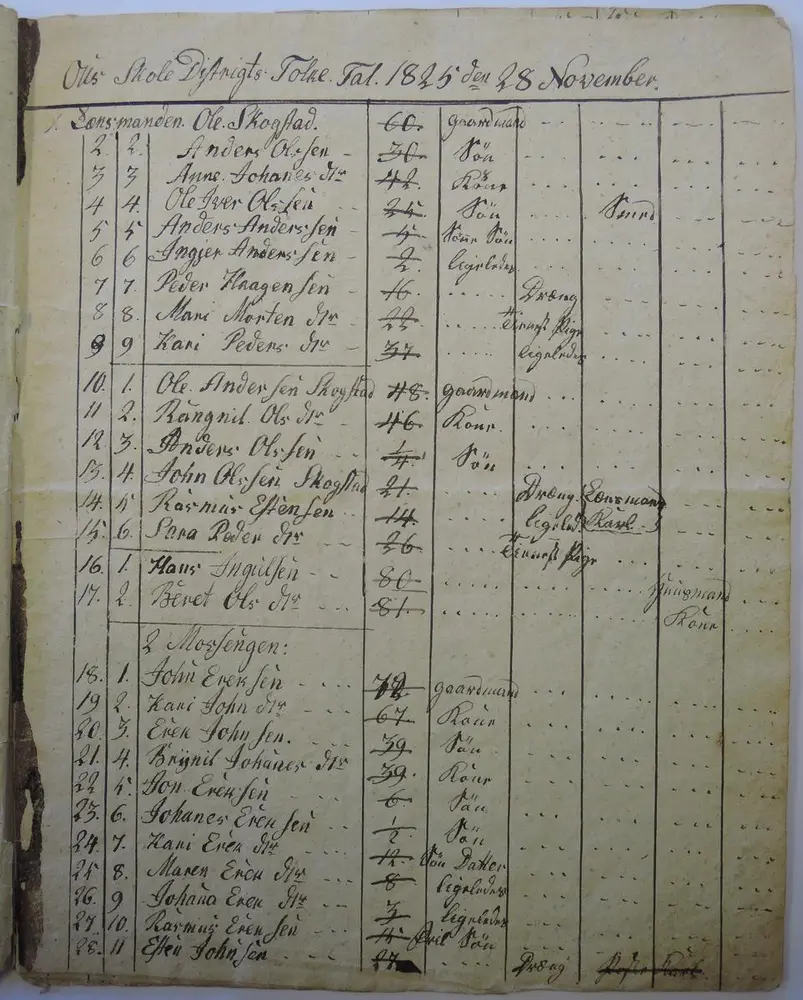 Ous Skole Dystrigts Folke Tal. 1825 den 28 November.
1. Lænsmanden Ole Skogstad. 60. gaardmand
2 2. Anders Olssen 30. Sön
3 3 Anne Johanes dtr 42. Kone
4 4. Ole Iver Olssen 25 Sön Smed
5 5 Anders Anderssen 5 Sönne Sön
6 6 Ingier Anderssen 2. ligeledes
7 7. Peder Haagensen 16 Dræng
8 8. Mari Morten dtr 22 Tienest Pige
9 9 Kari Peders dtr 37 ligeledes
10. 1. Ole Andersen Skogstad 48. gaardmand
11 2. Rangnil Ols dtr 46 Kone
12 3. Anders Olssen 1/4 Sön
13. 4 John Olssen Skogstad 21. Dræng Lænsmand
14. 5 Rasmus Estensen 14. ligeled Karl
15. 6. Sara Peder dtr 26 Tienest Pige
16. 1. Hans Ingulsen 80 Huusmand
17. 2. Beret Ols dtr 81. Kone
2 Morsengen:
18. 1. John Ereksen 72 gaardmand
19 2. Kari John dtr 67 Kone
20. 3. Erek Johnsen. 39 Sön
21. 4. Brynil Johanes dtr 39. Kone
22 5. Jon Ereksen 6 Sön
23. 6. Johanes Ereksen 1/2 Sön
24. 7. Kari Erek dtr 12. Sön Datter
25 8. Maren Erek dtr 8 ligeledes
26. 9 Johana Erek dtr 3 ligeledes
27 10. Rasmus Ereksen 15 Sön
28. 11 Esten Johnsen 27 Dræng